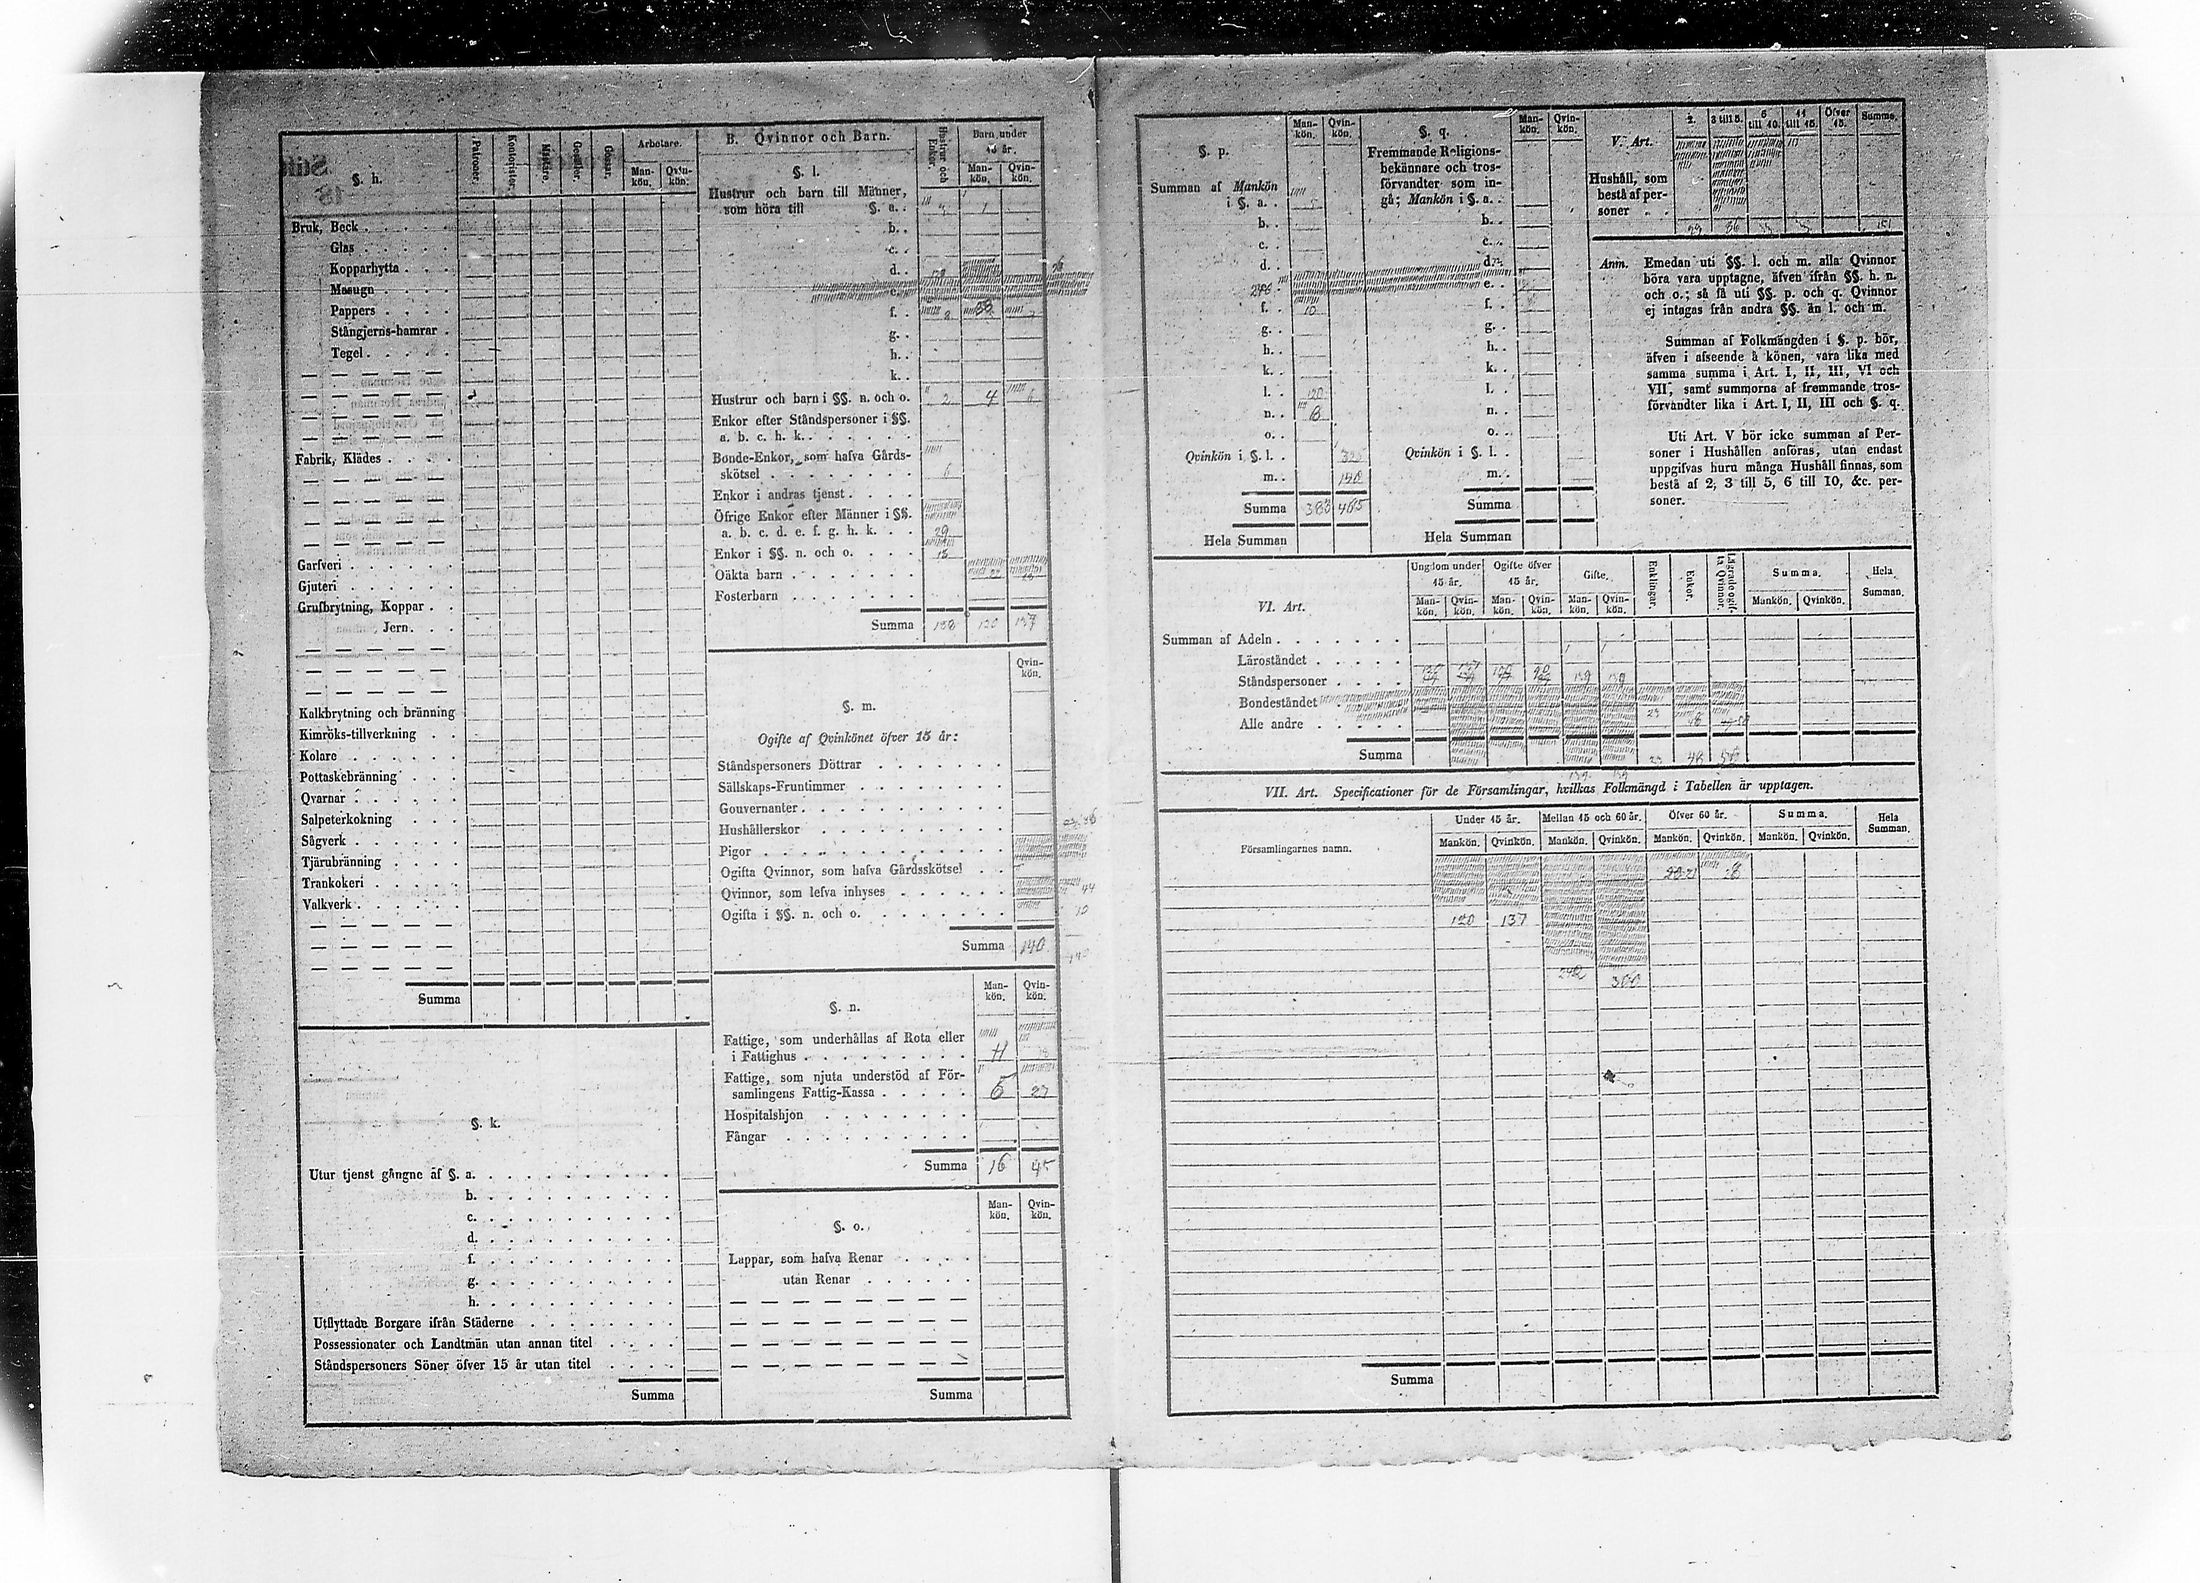 §. h.
Patroner.
Kontorister.
Mästare.
Gesäller.
Gossar.
Arbetare.
Man-kön.
Qvin-kön.
Bruk, Beck
Glas
Kopparhytta
Masugn
Pappers
Stångjerns-hamrar
Tegel
Fabrik, Klädes
Garfveri
Gjuteri
Grufbrytning, Koppar
Jern
Kalkbrytning och bränning
Kimröks-tillverkning
Kolare
Pottaskebränning
Qvarnar
Salpeterkokning
Sågverk
Tjärubränning
Trankokeri
Valkverk
Summa
§. k.
Utur tjenst gångne af §. a.
b.
c.
d.
f.
g.
h.
Utflyttade Borgare ifrån Städerne
Possessionater och Landtmän utan annan titel
Ståndspersoners Söner öfver 15 år utan titel
Summa
B. Qvinnor och Barn.
Hustrur och Enkor.
Barn under 15 år.
Man-kön.
Qvin-kön.
§. l.
Hustrur och barn till Männer,
som höra till §. a.
b.
c.
d.
e.
f.
g.
h.
k.
Hustrur och barn i §§. n. och o. 2 4
Enkor efter Ståndspersoner i §§.
a. b. c. h. k.
Bonde-Enkor, som hafva Gårds-
skötsel
Enkor i andras tjenst
Öfrige Enkor efter Männer i §§.
a. b. c. d. e. f. g. h. k. 29
Enkor i §§. n. och o.
Oäkta barn
Fosterbarn
Summa 188 120 137
Qvin-kön.
§. m.
Ogifte af Qvinkönet öfver 15 år:
Ståndspersoners Döttrar
Sällskaps-Fruntimmer
Gouvernanter
Hushållerskor
Pigor
Ogifta Qvinnor, som hafva Gårdsskötsel
Qvinnor, som lefva inhyses 44
Ogifta i §§. n. och o. 10
Summa 140
§. n.
Man-kön.
Qvin-kön.
Fattige, som underhållas af Rota eller
i Fattighus 11
Fattige, som njuta understöd af För-
samlingens Fattig-Kassa 5 27
Hospitalshjon
Fångar
Summa 16 45
§. o.
Man-kön.
Qvin-kön.
Lappar, som hafva Renar
utan Renar
Summa
§. p.
Man-kön.
Qvin-kön.
Summan af Mankön
i §. a.
b.
c.
d.
f. 10
g.
h.
k.
l. 120
n.
o.
Qvinkön i §. l.
m.
Summa 383 465
Hela Summan
§. q.
Man-kön.
Qvin-kön.
Fremmande Religions-
bekännare och tros-
förvandter som in-
gå; Mankön i §. a.
b.
c.
d.
e.
f.
g.
h.
k.
l.
n.
o.
Qvinkön i §. l.
m.
Summa
Hela Summan
V. Art.
2.
3 till 5.
6 till 10.
11 till 15.
Öfver 15.
Summa.
Hushåll, som
bestå af per-
soner
Anm. Emedan uti §§. l. och m. alla Qvinnor
böra vara upptagne, äfven ifrån §§. h. n.
och o.; så få uti §§. p. och q. Qvinnor
ej intagas från andra §§. än l. och m.
Summan af Folkmängden i §. p. bör,
äfven i afseende å könen, vara lika med
samma summa i Art. I, II, III, VI och
VII, samt summorna af fremmande tros-
förvandter lika i Art. I, II, III och §. q.
Uti Art. V bör icke summan af Per-
soner i Hushållen anföras, utan endast
uppgifvas huru många Hushåll finnas, som
bestå af 2, 3 till 5, 6 till 10, &c. per-
soner.
VI. Art.
Ungdom under 15 år.
Ogifte öfver 15 år.
Gifte.
Enklingar.
Enkor.
Lägrade ogif-ta Qvinnor.
Summa.
Hela Summan.
Man-kön. Qvin-kön. Man-kön. Qvin-kön. Man-kön. Qvin-kön. Mankön. Qvinkön.
Summan af Adeln
Läroståndet
Ståndspersoner
Bondeståndet
Alle andre 23
Summa 23 48 58
VII. Art. Specificationer för de Församlingar, hvilkas Folkmängd i Tabellen är upptagen.
Församlingarnes namn.
Under 15 år.
Mellan 15 och 60 år.
Öfver 60 år.
Summa.
Hela Summan.
Mankön. Qvinkön. Mankön. Qvinkön. Mankön. Qvinkön. Mankön. Qvinkön.
120 137
242 300
Summa